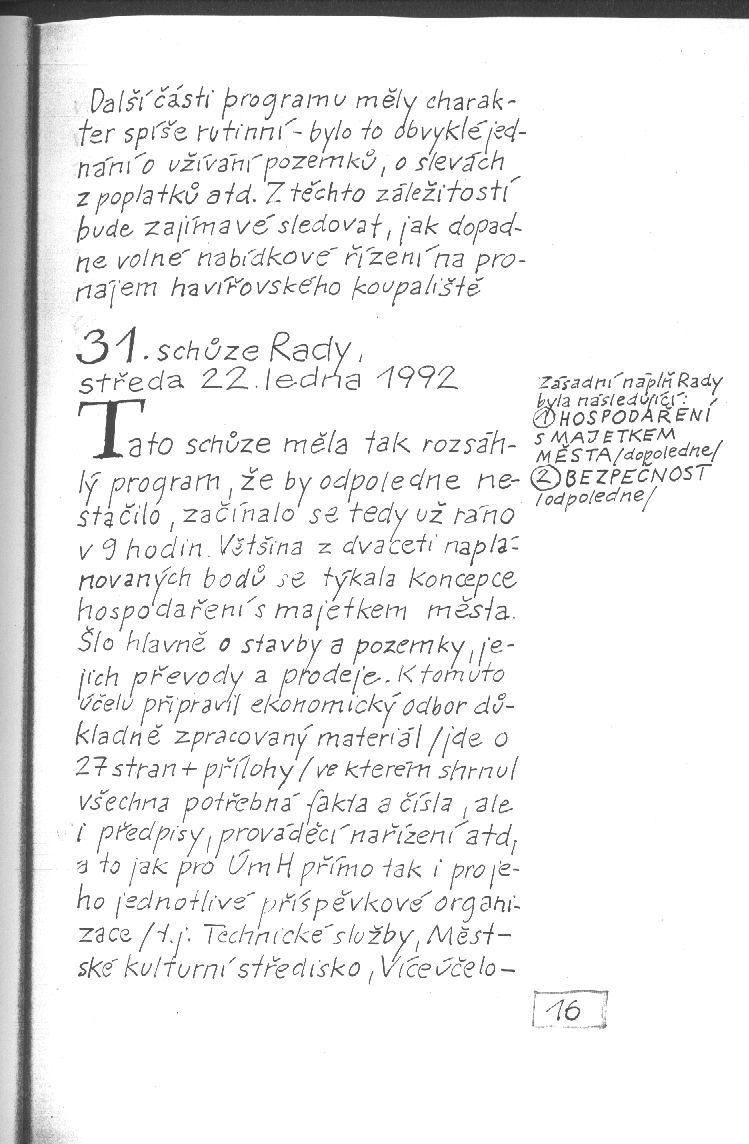 Další části programu měly charak-
ter spíše rutinní - bylo to obvyklé jed-
nání o užívání pozemků, o slevách
z poplatků atd. Z těchto záležitostí
bude zajímavé sledovat, jak dopad-
ne volné nabídkové řízení na pro-
nájem havířovského koupaliště
31. schůze Rady,
středa 22. ledna 1992
Tato schůze měla tak rozsáh-
lý program, že by odpoledne ne-
stačilo, začínalo se tedy už ráno
v 9 hodin. Většina z dvaceti naplá-
novaných bodů se týkala koncepce
hospodaření s majetkem města.
Šlo hlavně o stavby a pozemky, je-
jich převody a prodeje. K tomuto
účelu připravil ekonomický odbor dů-
kladně zpracovaný materiál /jde o
27 stran + přílohy/ ve kterém shrnul
všechna potřebná fakta a čísla, ale
i předpisy, prováděcí nařízení atd,
a to jak pro ÚmH přímo tak i pro je-
ho jednotlivé příspěvkové organi-
zace /t.j. Technické služby, Měst-
ské kulturní středisko, Víceúčelo-
Zásadní náplň Rady
byla následující:
① HOSPODAŘENÍ
S MAJETKEM
MĚSTA /dopoledne/
② BEZPEČNOST
/odpoledne/
16